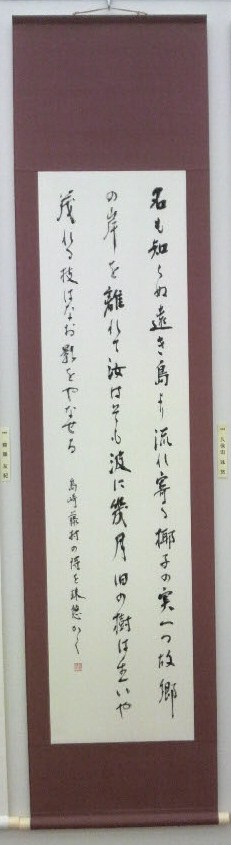 名も知らぬ遠き島より流れ寄る椰子の実一つ故郷
の岸を離れて汝はそも波に幾月旧の樹は生いや
茂れる枝はなお影をやなせる
島崎藤村の詩を珠悠かく